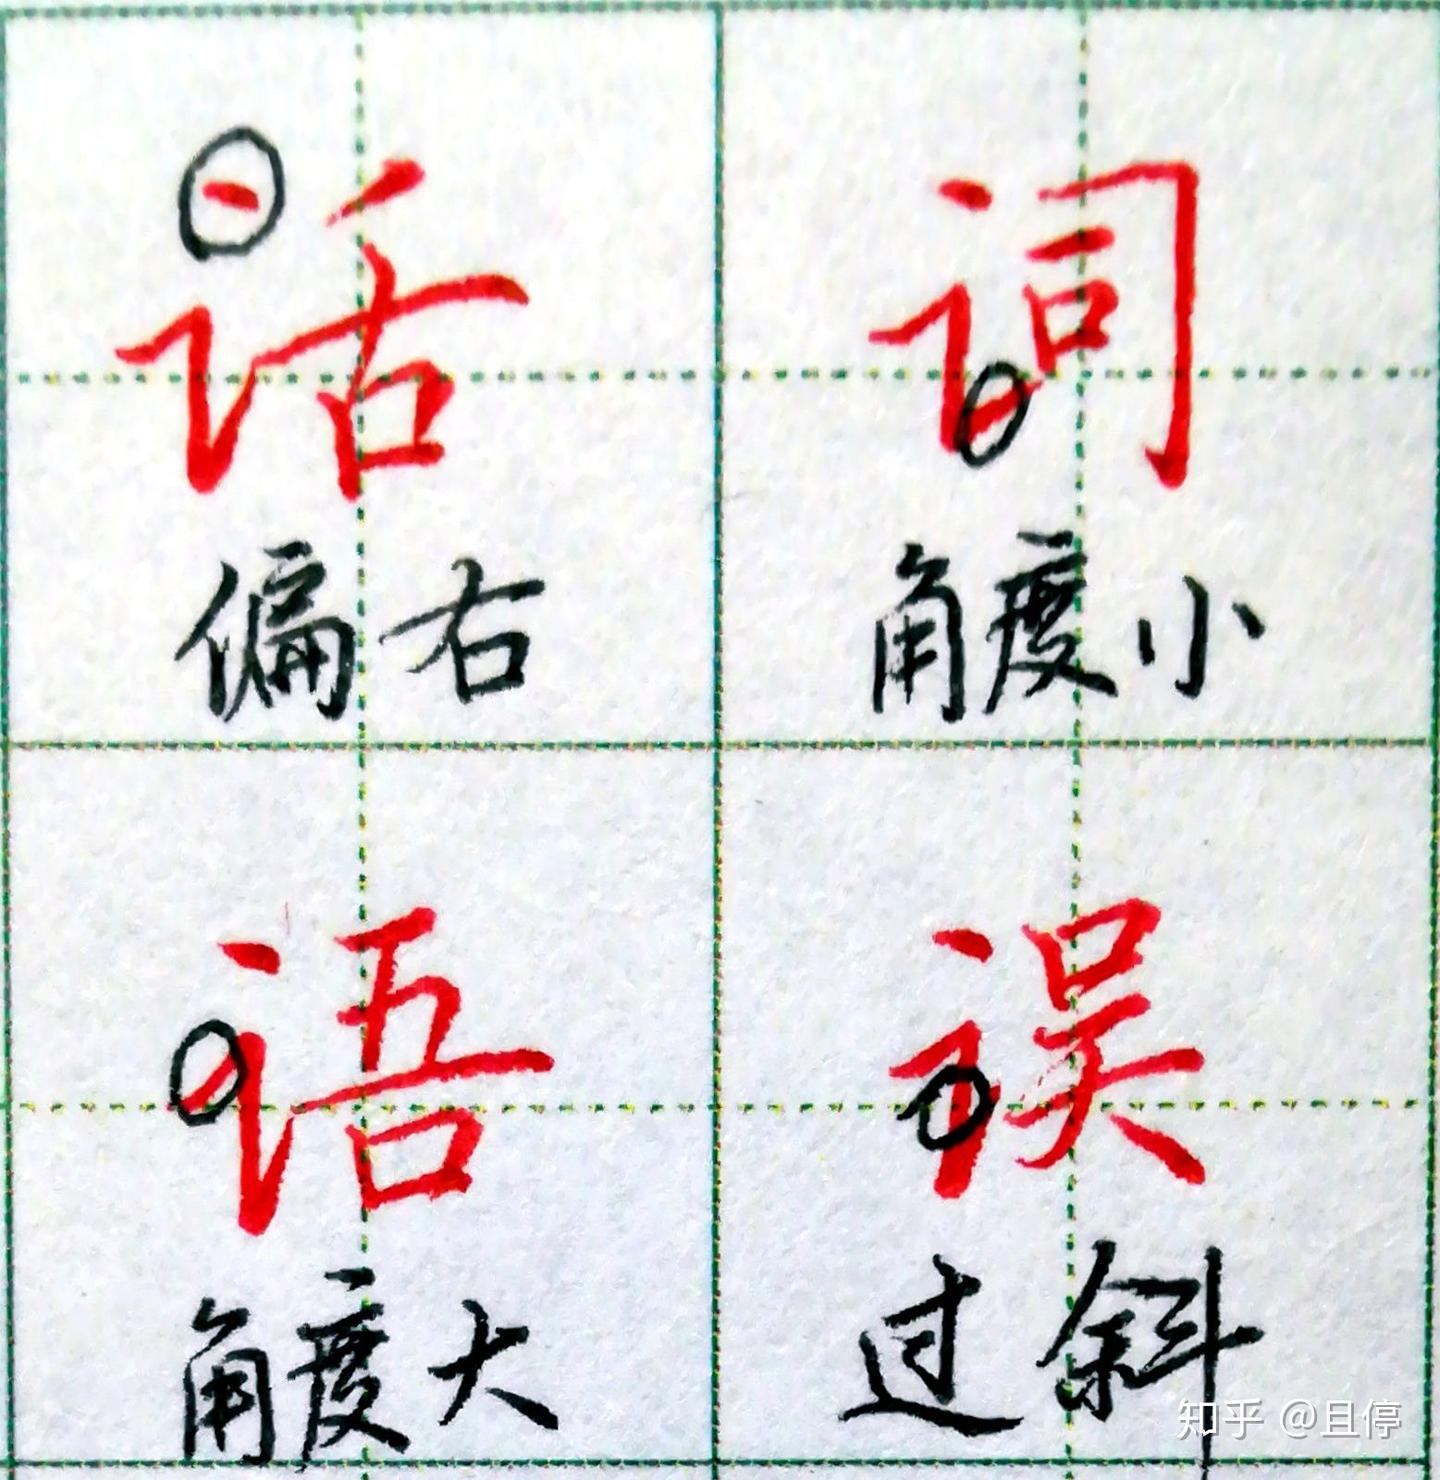 话 词
偏右 角度小
语 误
角度大 过斜
知乎 @且停